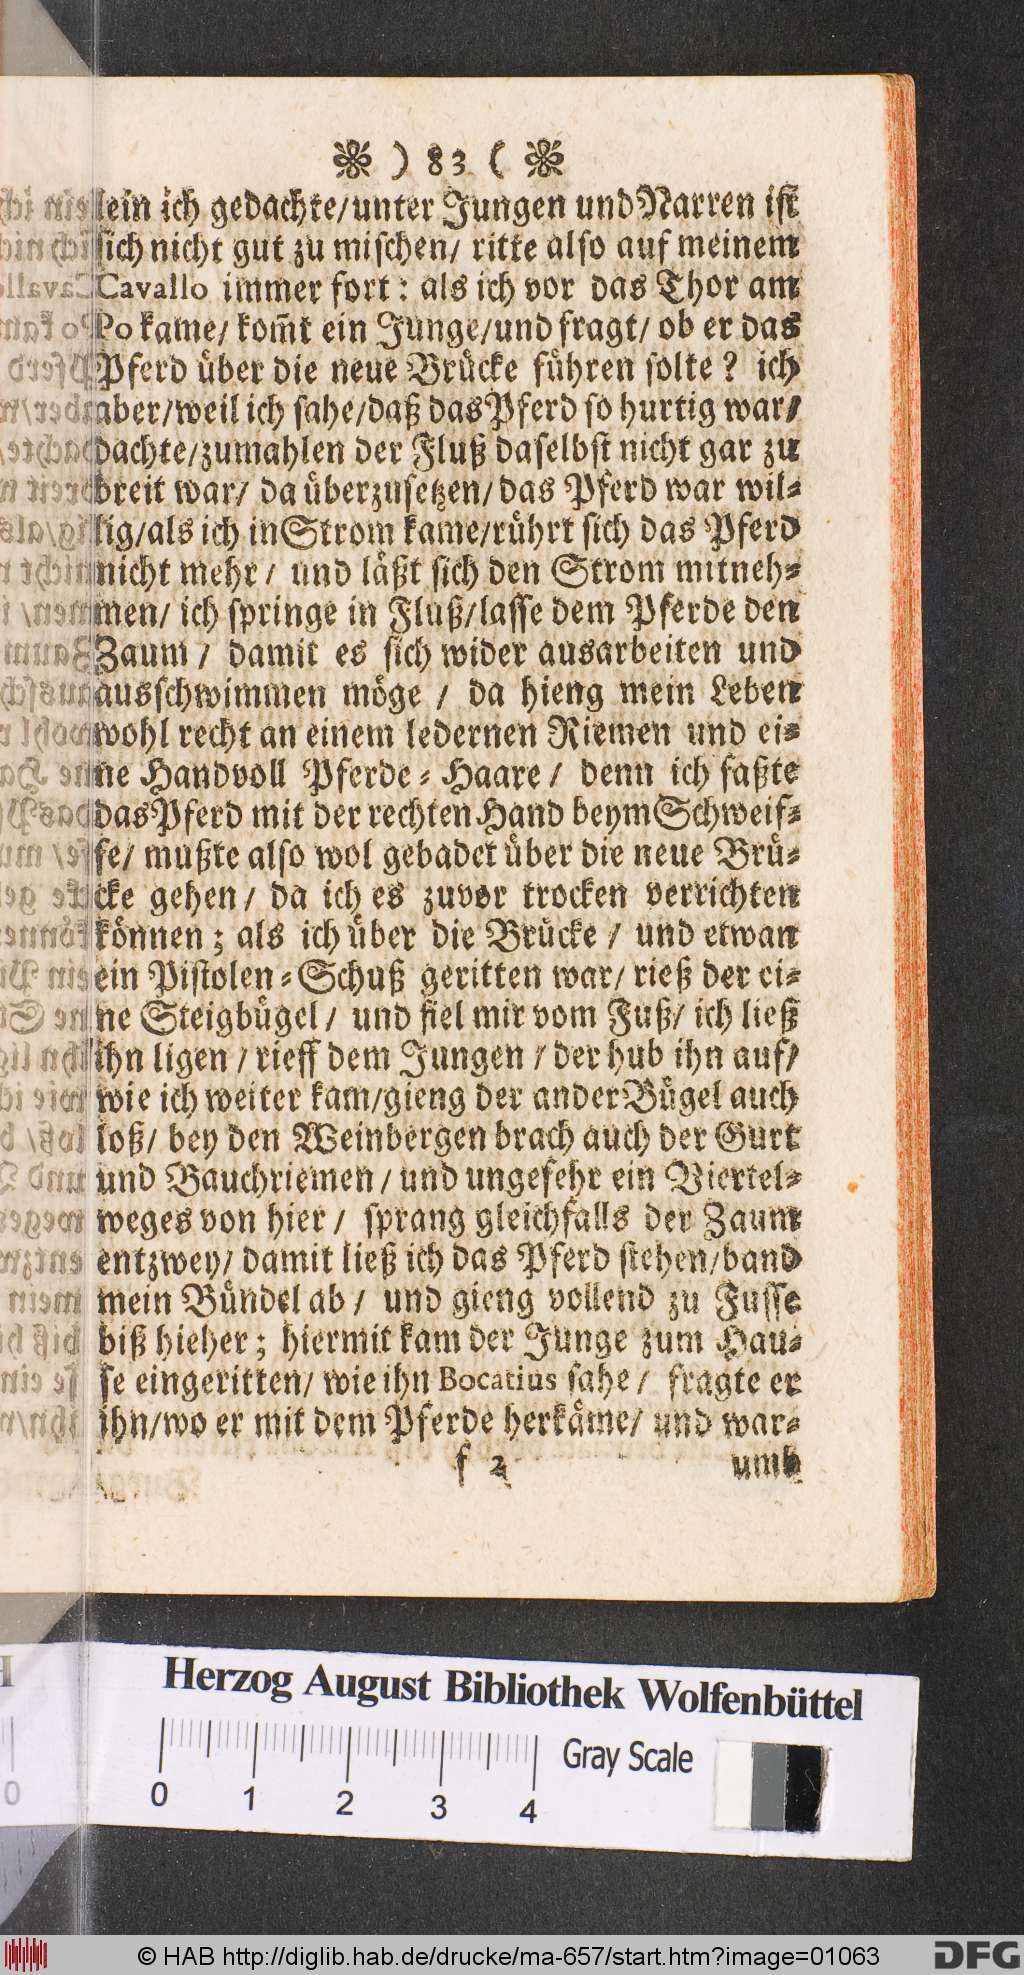 ❀ ) 83 ( ❀
lein ich gedachte/unter Jungen und Narren iſt
ſich nicht gut zu miſchen/ ritte alſo auf meinem
Cavallo immer fort: als ich vor das Thor am
Po kame/ kom̃t ein Junge/und fragt/ ob er das
Pferd uͤber die neue Bruͤcke fuͤhren ſolte? ich
aber/weil ich ſahe/daß das Pferd ſo hurtig war/
dachte/zumahlen der Fluß daſelbſt nicht gar zu
breit war/ da uͤberzuſetzen/ das Pferd war wil-
lig/als ich in Strom kame/ruͤhrt ſich das Pferd
nicht mehr/ und laͤßt ſich den Strom mitneh-
men/ ich ſpringe in Fluß/laſſe dem Pferde den
Zaum/ damit es ſich wider ausarbeiten und
ausſchwimmen moͤge/ da hieng mein Leben
wohl recht an einem ledernen Riemen und ei-
ne Handvoll Pferde-Haare/ denn ich faßte
das Pferd mit der rechten Hand beym Schweif-
fe/ mußte alſo wol gebadet uͤber die neue Bruͤ-
cke gehen/ da ich es zuvor trocken verrichten
koͤnnen; als ich uͤber die Bruͤcke/ und etwan
ein Piſtolen-Schuß geritten war/ rieß der ei-
ne Steigbuͤgel/ und fiel mir vom Fuß/ ich ließ
ihn ligen/ rieff dem Jungen/ der hub ihn auf/
wie ich weiter kam/gieng der ander Buͤgel auch
loß/ bey den Weinbergen brach auch der Gurt
und Bauchriemen/ und ungefehr ein Viertel-
weges von hier/ ſprang gleichfalls der Zaum
entzwey/ damit ließ ich das Pferd ſtehen/band
mein Buͤndel ab/ und gieng vollend zu Fuſſe
biß hieher; hiermit kam der Junge zum Hau-
ſe eingeritten/ wie ihn Bocatius ſahe/ fragte er
ihn/wo er mit dem Pferde herkaͤme/ und war-
f 2 umb
Herzog August Bibliothek Wolfenbüttel
0 1 2 3 4 Gray Scale
© HAB http://diglib.hab.de/drucke/ma-657/start.htm?image=01063
DFG